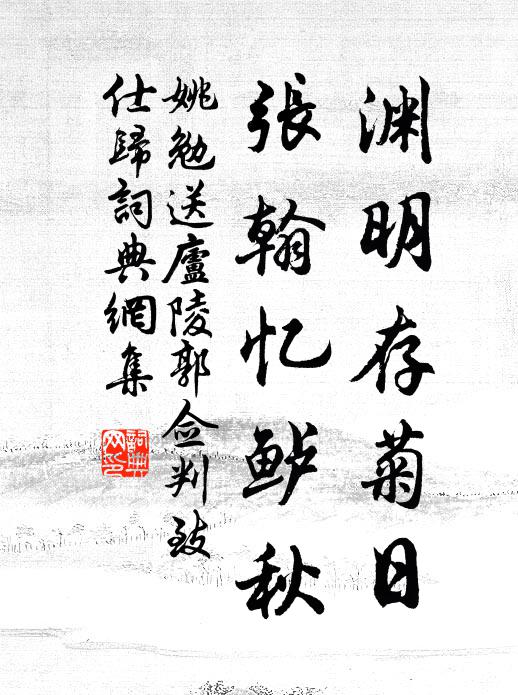 渊明存菊日
張翰忆鲈秋
姚勉送廬陵郭僉判致
仕歸詞典網集
詞典
网印